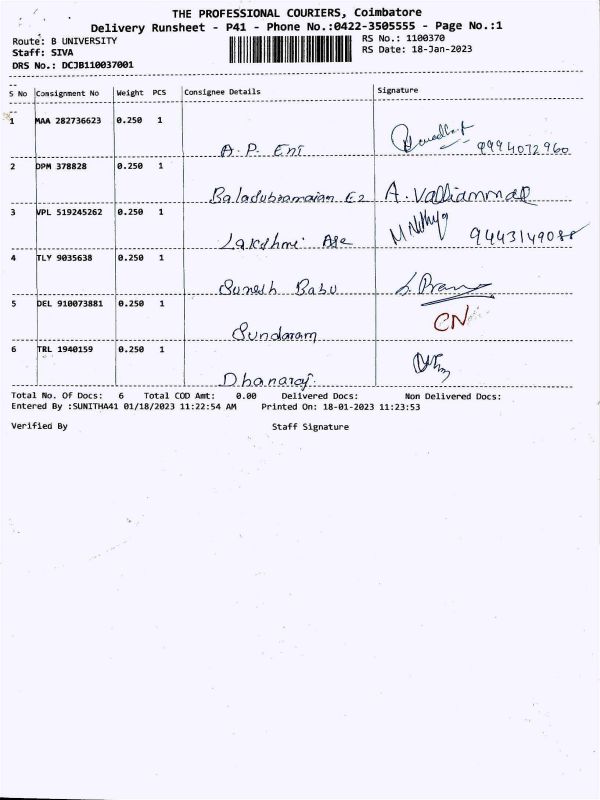 THE PROFESSIONAL COURIERS, Coimbatore
Delivery Runsheet - P41 - Phone No.:0422-3505555 - Page No.:1
Route: B UNIVERSITY RS No.: 1100370
Staff: SIVA RS Date: 18-Jan-2023
DRS No.: DCJB110037001
S No Consignment No Weight PCS Consignee Details Signature
1 MAA 282736623 0.250 1
A.P. Ent 9994072960
2 DPM 378828 0.250 1
Baladubramaian E2 A. Valliammal
3 VPL 519245262 0.250 1
Lakshmi Age M Nithya
4 TLY 9035638 0.250 1
Suresh Babu
5 DEL 910073881 0.250 1 CN
Sundaram
6 TRL 1940159 0.250 1
Dhanaraj.
Total No. Of Docs: 6 Total COD Amt: 0.00 Delivered Docs: Non Delivered Docs:
Entered By :SUNITHA41 01/18/2023 11:22:54 AM Printed On: 18-01-2023 11:23:53
Verified By Staff Signature